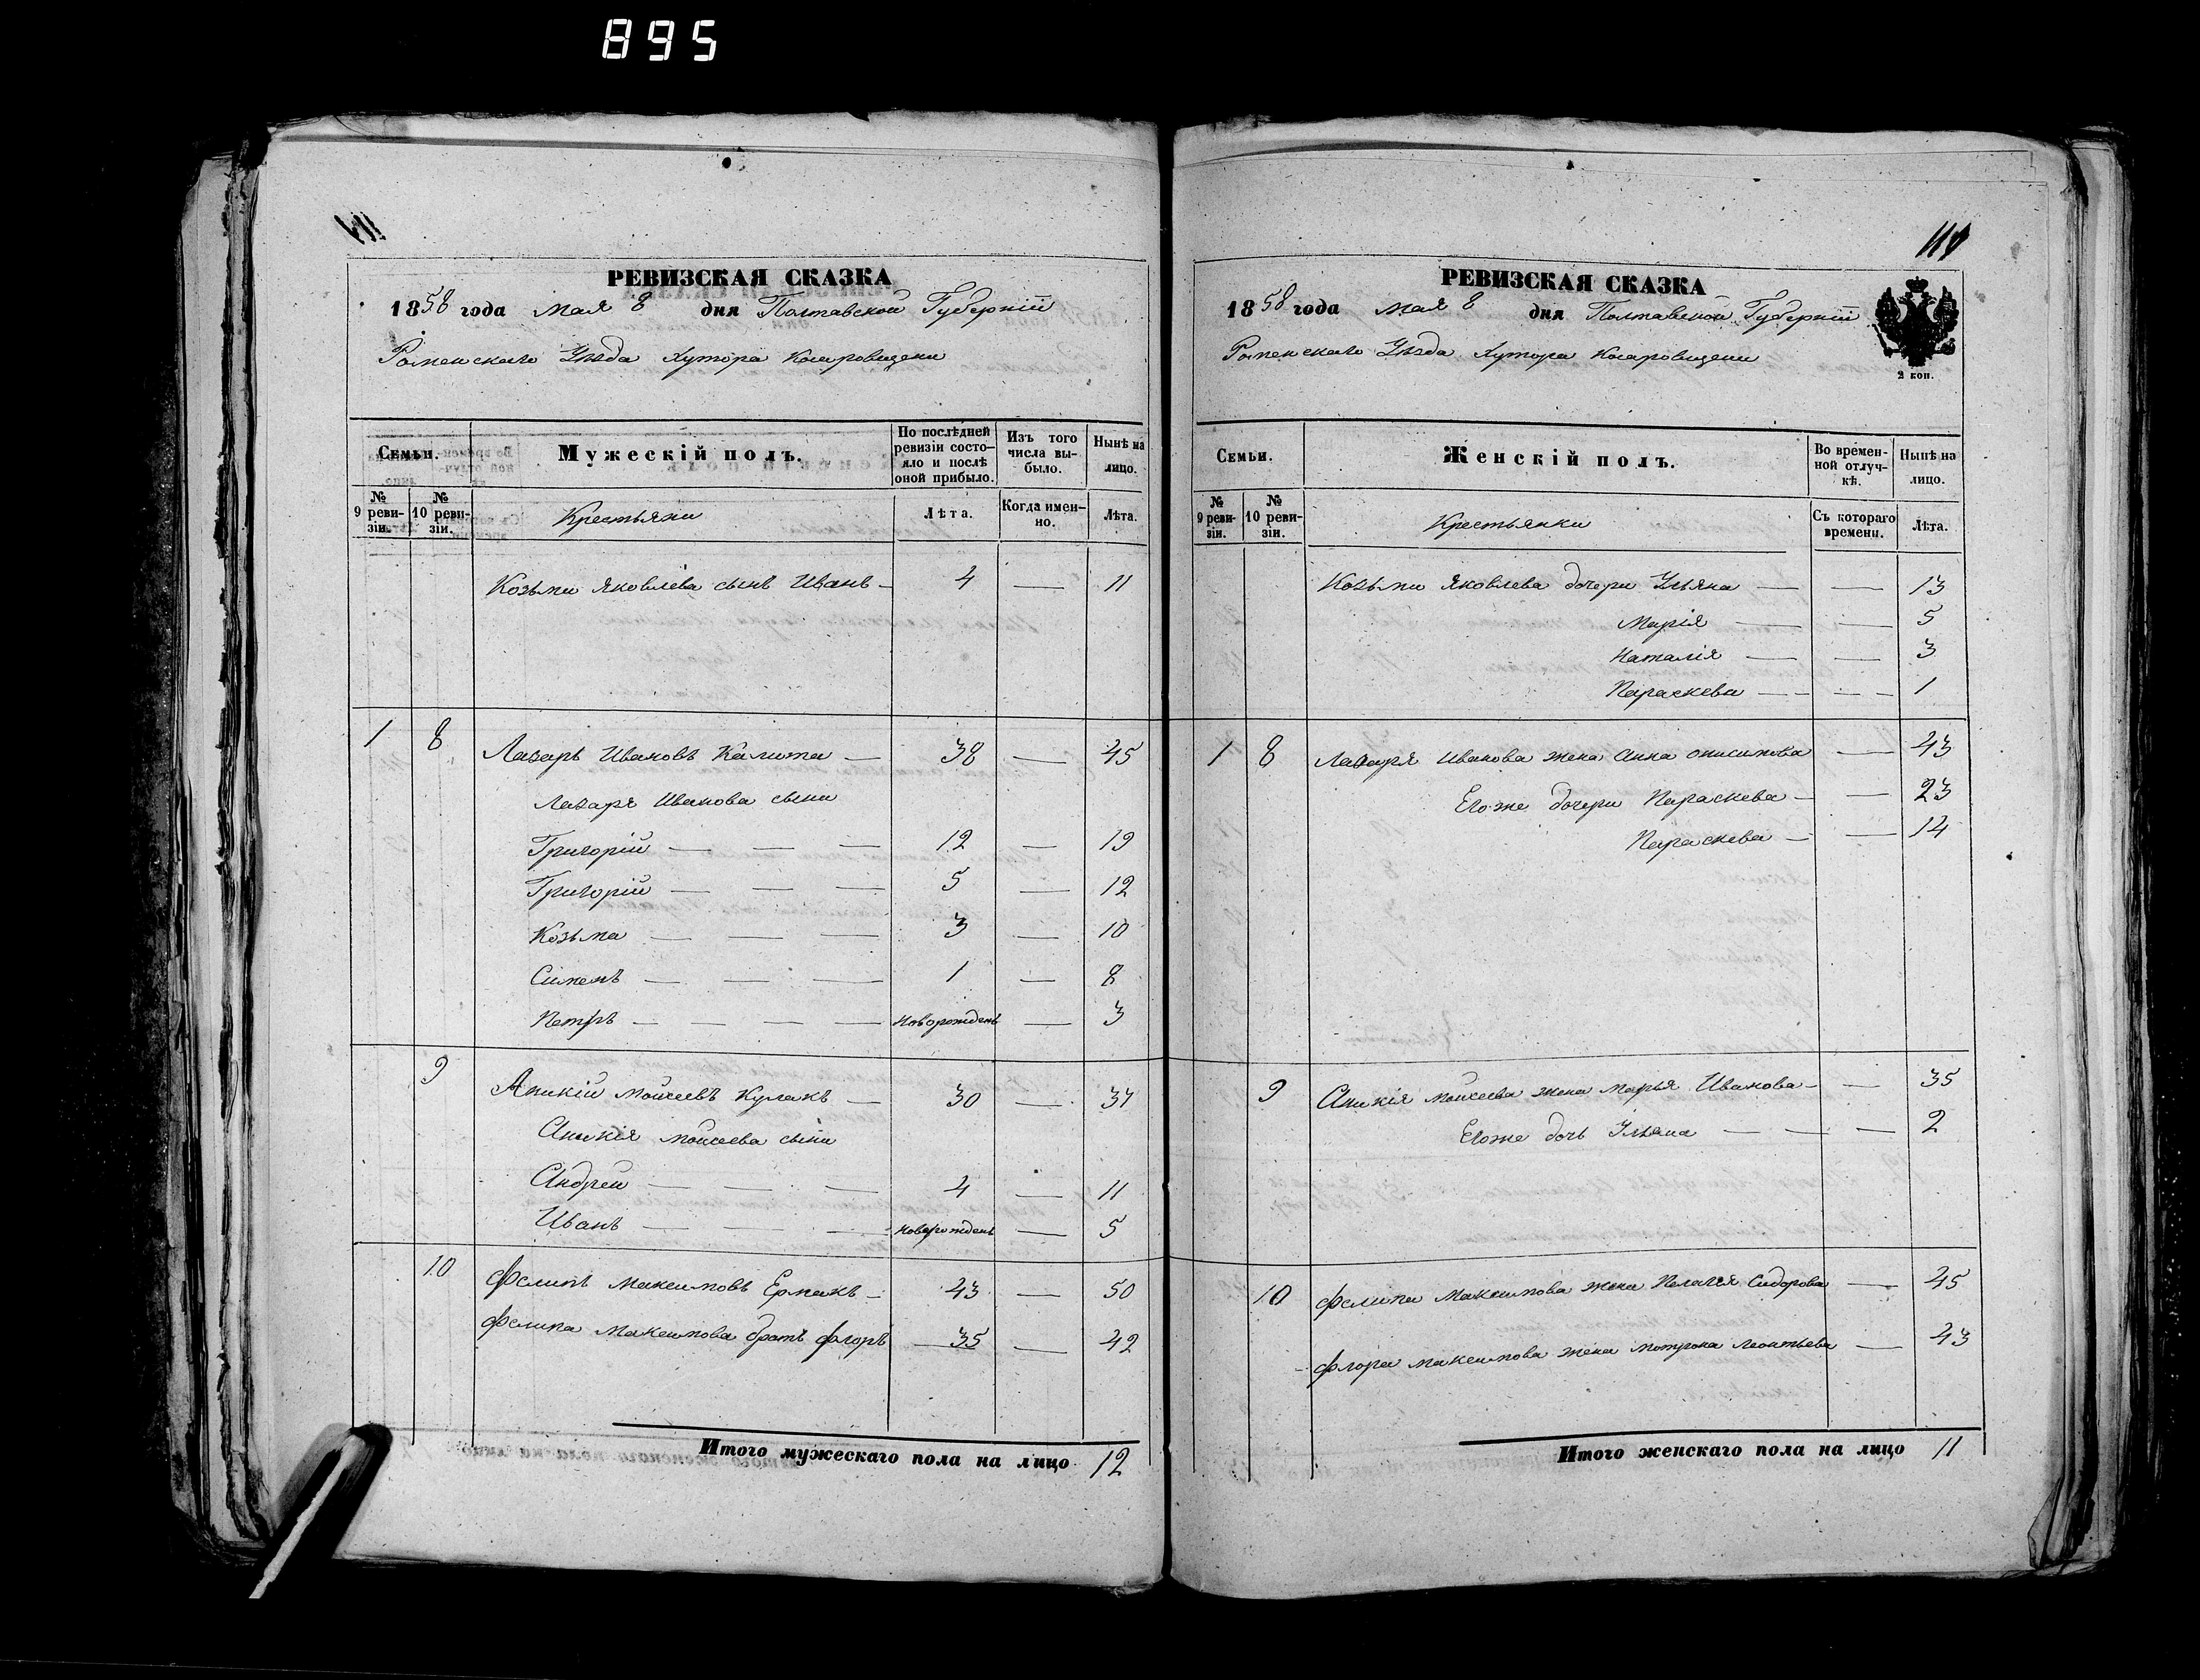 895
РЕВИЗСКАЯ СКАЗКА
1858 года мая 8 дня Полтавской Губерніи
Роменскаго Уѣзда Хутора
Семьи.
Мужескій полъ.
По послѣдней ревизіи состояло и послѣ оной прибыло.
Изъ того числа выбыло.
Нынѣ на лицо.
№ 9 ревизіи.
№ 10 ревизіи.
Крестьяни
Лѣта.
Когда именно.
Лѣта.
Козьми Яковлева сынъ Иванъ — 4 — 11
1 8 Лазарь Ивановъ Калита — 38 — 45
Лазаря Иванова сыни
Григорій — — — 12 — 19
Григорій — — — 5 — 12
Козьма — — — 3 — 10
Сименъ — — — 1 — 8
Петръ — — — — новорожденъ — 3
9 Аникій Моисеевъ Кулакъ — 30 — 37
Аникія Моисеева сыни
Андрей — — — 4 — 11
Иванъ — — — новорожденъ — 5
10 Филипъ Максимовъ Ермакъ — 43 — 50
Филипа Максимова братъ Флоръ — 35 — 42
Итого мужескаго пола на лицо 12
РЕВИЗСКАЯ СКАЗКА
1858 года мая 8 дня Полтавской Губерніи
Роменскаго Уѣзда Хутора
2 коп.
Семьи.
Женскій полъ.
Во временной отлучкѣ.
Нынѣ на лицо.
№ 9 ревизіи.
№ 10 ревизіи.
Крестьянки
Съ котораго времени.
Лѣта.
Козьми Яковлева дочери Ульяна — — 13
Марія — — 5
Наталія — — 3
Параскева — — — — 1
1 8 Лазаря Иванова жена Анна Онисимова — 43
Егоже дочери Параскева — — 23
Параскева — — 14
9 Аникія Моисеева жена Марья Иванова — — 35
Егоже дочь Ульяна — — — 2
10 Филипа Максимова жена Пелагея Сидорова — 45
Флора Максимова жена Мотрона Леонтьева — 43
Итого женскаго пола на лицо 11